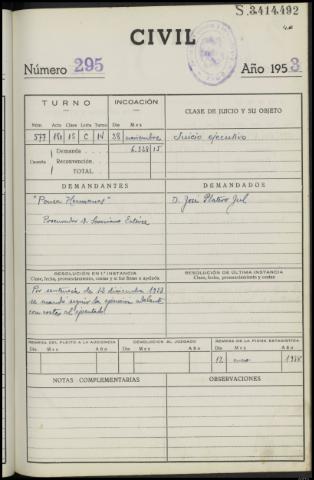 S.3.414.492
CIVIL
Número 295 Año 1953
TURNO INCOACIÓN CLASE DE JUICIO Y SU OBJETO
Núm. Año Clase Letra Turno Día Mes
577 15 C 28 noviembre Juicio ejecutivo
Cuantía Demanda 15
Reconvención
TOTAL
DEMANDANTES DEMANDADOS
Hermanos" D. José
Procurador
RESOLUCIÓN EN 1.ª INSTANCIA RESOLUCIÓN DE ÚLTIMA INSTANCIA
Clase, fecha, pronunciamiento, costas y si fué firme o apelada Clase, fecha, pronunciamiento y costas
Por sentencia de 12 diciembre 1953
se mandó seguir la ejecución adelante
con costas al ejecutado.
REMESA DEL PLEITO A LA AUDIENCIA DEVOLUCIÓN AL JUZGADO REMESA DE LA FICHA ESTADÍSTICA
Día Mes Año Día Mes Año Día Mes Año
12
NOTAS COMPLEMENTARIAS OBSERVACIONES